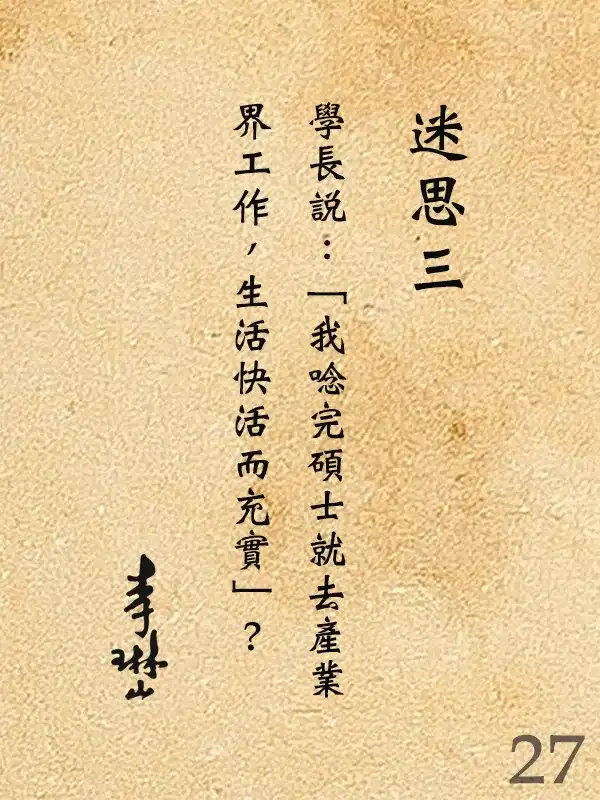 迷思三
學長說：「我唸完碩士就去產業
界工作，生活快活而充實」？
李琳山
27